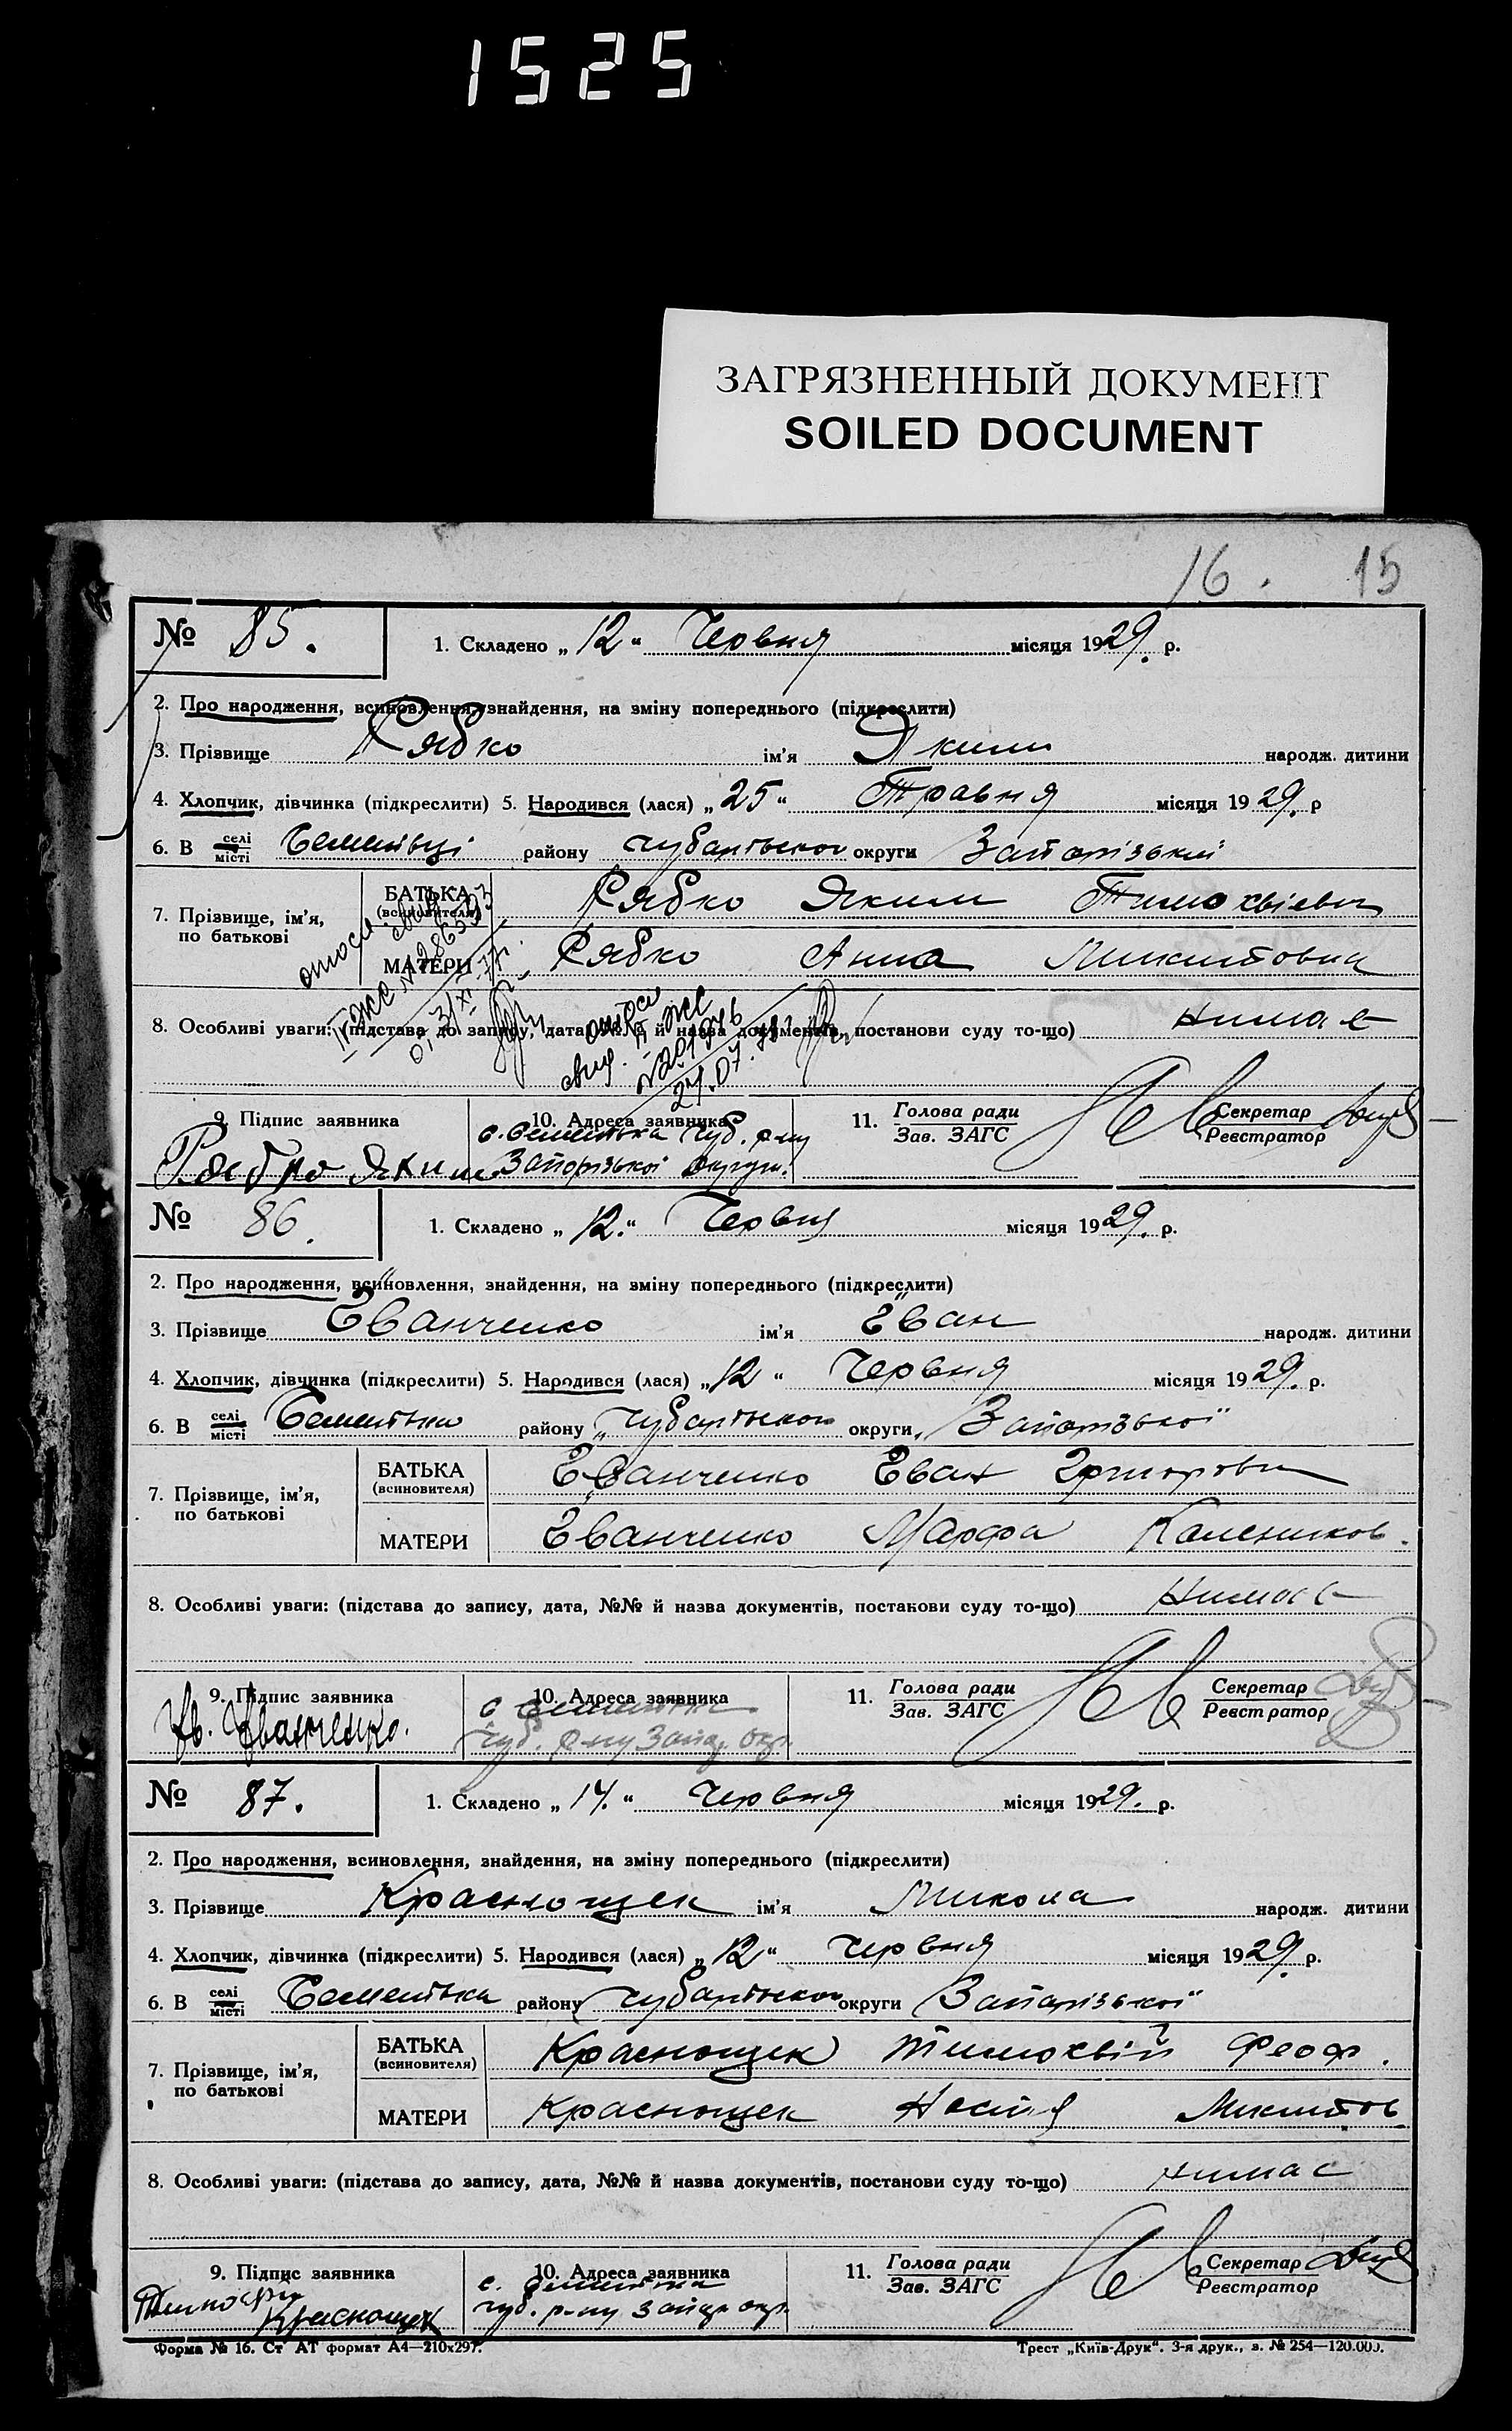 1525
ЗАГРЯЗНЕННЫЙ ДОКУМЕНТ
SOILED DOCUMENT
16. 15
№ 85. 1. Складено „12“ Червня місяця 1929. р.
2. Про народження, всиновлення, знайдення, на зміну попереднього (підкреслити)
3. Прізвище Рябко ім'я Яким народж. дитини
4. Хлопчик, дівчинка (підкреслити) 5. Народився (лася) „25“ Травня місяця 1929. р
6. В селі місті Семенівці району Чубарівського округи Запорізької
7. Прізвище, ім'я, по батькові БАТЬКА (всиновителя) Рябко Яким Тимохвієвич
МАТЕРИ Рябко Анна Микитовна
8. Особливі уваги: (підстава до запису, дата, №№ й назва документів, постанови суду то-що) Нимає
9. Підпис заявника 10. Адреса заявника 11. Голова ради Зав. ЗАГС Секретар Реєстратор
с. Семенівка Чуб. р-ну
Рябко Яким Запорізької округи.
№ 86. 1. Складено „12.“ Червня місяця 1929. р.
2. Про народження, всиновлення, знайдення, на зміну попереднього (підкреслити)
3. Прізвище Єванченко ім'я Єван народж. дитини
4. Хлопчик, дівчинка (підкреслити) 5. Народився (лася) „12“ Червня місяця 1929. р.
6. В селі місті Семенівка району Чубарівского округи Запорізької
7. Прізвище, ім'я, по батькові БАТЬКА (всиновителя) Єванченко Єван Григорович
МАТЕРИ Єванченко Марфа Калеников.
8. Особливі уваги: (підстава до запису, дата, №№ й назва документів, постанови суду то-що) Нимає
9. Підпис заявника 10. Адреса заявника 11. Голова ради Зав. ЗАГС Секретар Реєстратор
с Семенівка
Ив. Иванченко. Чуб. р-ну Запор. окр.
№ 87. 1. Складено „14.“ Червня місяця 1929. р.
2. Про народження, всиновлення, знайдення, на зміну попереднього (підкреслити)
3. Прізвище Краснощек ім'я Микола народж. дитини
4. Хлопчик, дівчинка (підкреслити) 5. Народився (лася) „12“ Червня місяця 1929. р.
6. В селі місті Семенівка району Чубарівского округи Запорізької
7. Прізвище, ім'я, по батькові БАТЬКА (всиновителя) Краснощек Тимохвій Феоф.
МАТЕРИ Краснощек Микитов
8. Особливі уваги: (підстава до запису, дата, №№ й назва документів, постанови суду то-що) нимає
9. Підпис заявника 10. Адреса заявника 11. Голова ради Зав. ЗАГС Секретар Реєстратор
с. Семенівка
Краснощек Чуб. р-ну Запор. окр.
Форма № 16. Ст АТ формат А4—210х297. Трест „Київ-Друк“. 3-я друк., з. № 254—120.000.